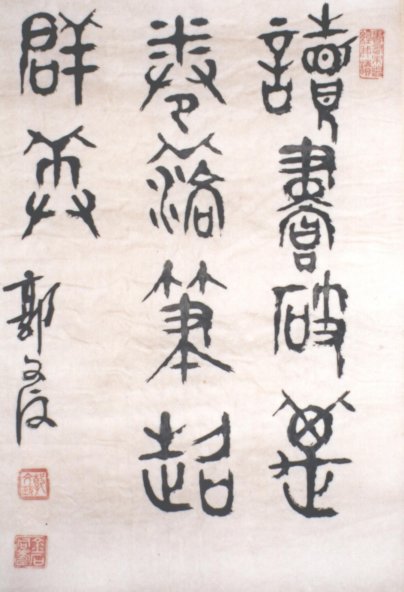 讀書破萬
卷落筆超
群英
郭文